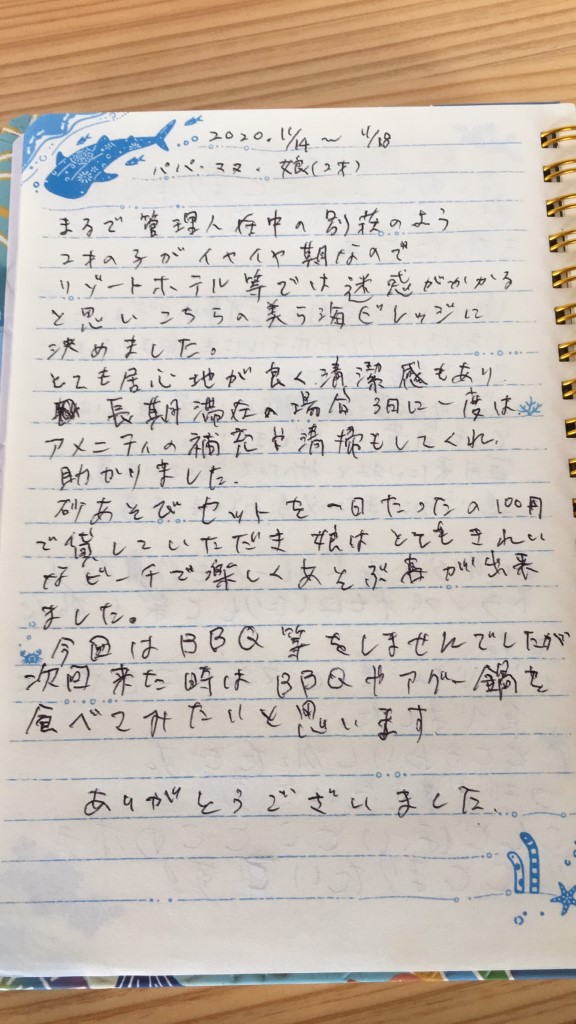 2020.11/14～11/18
パパ・ママ・娘(2才)
まるで管理人在中の別荘のよう
2才の子がイヤイヤ期なので
リゾートホテル等では迷惑がかかる
と思いこちらの美ら海ビレッジに
決めました。
とても居心地が良く清潔感もあり
長期滞在の場合3日に一度は
アメニティの補充や清掃もしてくれ、
助かりました。
砂あそびセットを一日たったの100円
で貸していただき娘はとてもきれい
なビーチで楽しくあそぶ事が出来
ました。
今回はBBQ等をしませんでしたが
次回来た時はBBQやアグー鍋を
食べてみたいと思います
ありがとうございました.